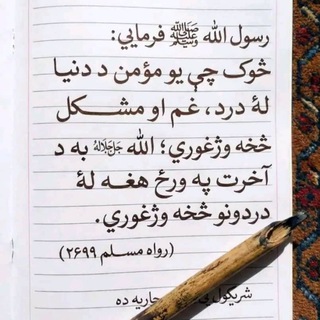 رسول الله ﷺ فرمايي:
څوک چې يو مؤمن د دنيا
لهٔ درد، غم او مشــکل
څخه وژغوري؛ الله ﷻ به د
آخرت په ورځ هغــه لهٔ
دردونو څخه وژغوري.
(رواه مسلم ۲۶۹۹)
شريکول يې جاريه ده